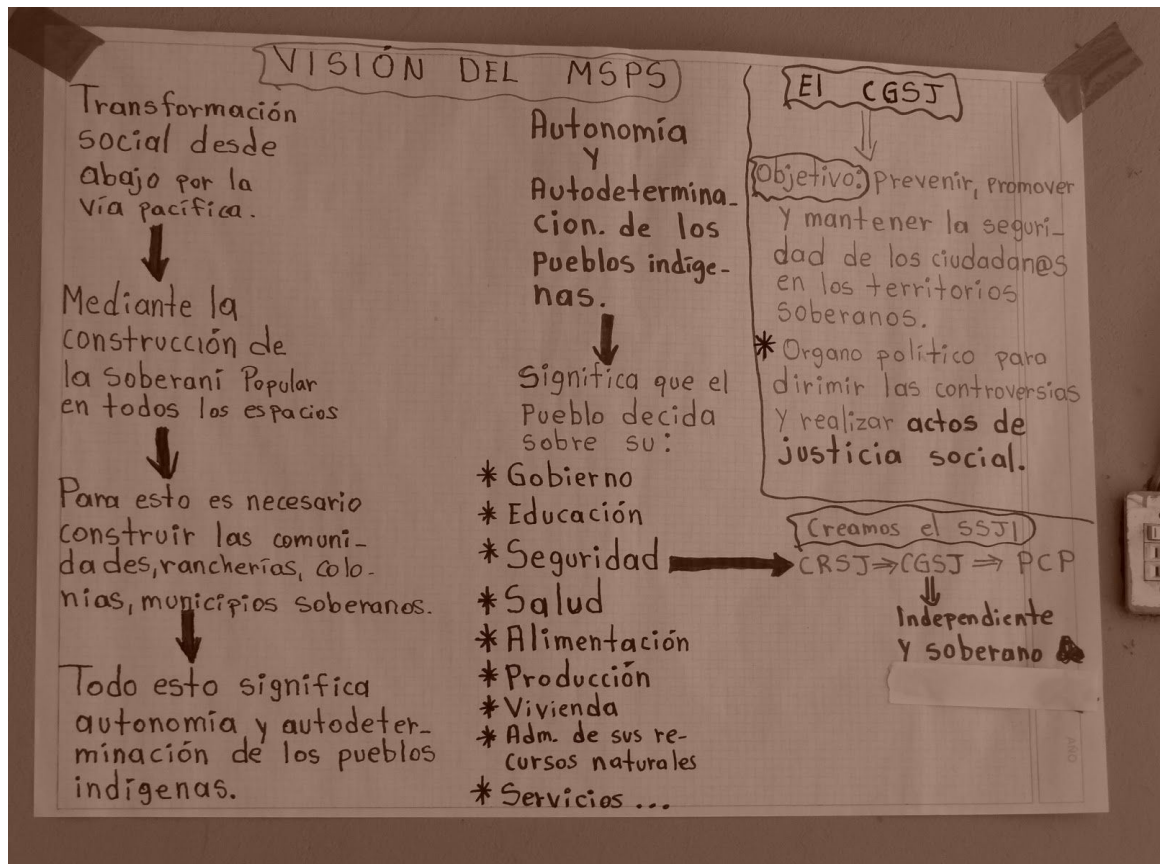 VISIÓN DEL MSPS
Transformación
social desde
abajo por la
vía pacífica.
Mediante la
construcción de
la soberaní Popular
en todos los espacios
Para esto es necesario
construir las comuni-
dades, rancherías, colo-
nias, municipios soberanos.
Todo esto significa
autonomía y autodeter-
minación de los pueblos
indígenas.
Autonomía
Y
Autodetermina-
cion. de los
Pueblos indíge-
nas.
Significa que el
Pueblo decida
sobre su:
* Gobierno
* Educación
* Seguridad
* Salud
* Alimentación
* Producción
* Vivienda
* Adm. de sus re-
cursos naturales
* Servicios ...
El CGSJ
Objetivo: Prevenir, promover
y mantener la seguri-
dad de los ciudadan@s
en los territorios
soberanos.
* Organo político para
dirimir las controversias
y realizar actos de
justicia social.
Creamos el SSJI
CRSJ⇒CGSJ⇒PCP
Independiente
Y soberano
AÑO